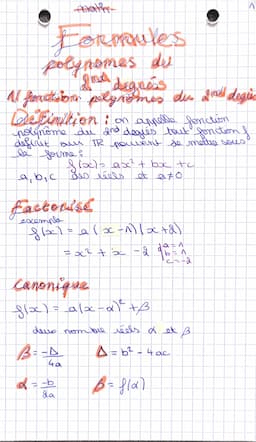 math
1
Formules
polynomes du
2nd degrés
1/ fonction polynomes du 2nd degrés
Définition : on appelle fonction
polynôme du 2nd degrés tout fonction f
définit sur IR pouvant se mettre sous
la forme :
f(x) = ax² + bx + c
a, b, c des réels et a≠0
Factorisé
exemple
f(x) = a (x-1)(x+2)
= x² + x - 2 a=1
b=1
c=-2
canonique
f(x) = a(x-α)² + β
deux nombre réels α et β
β = -Δ/4a Δ = b² - 4ac
α = -b/2a β = f(α)